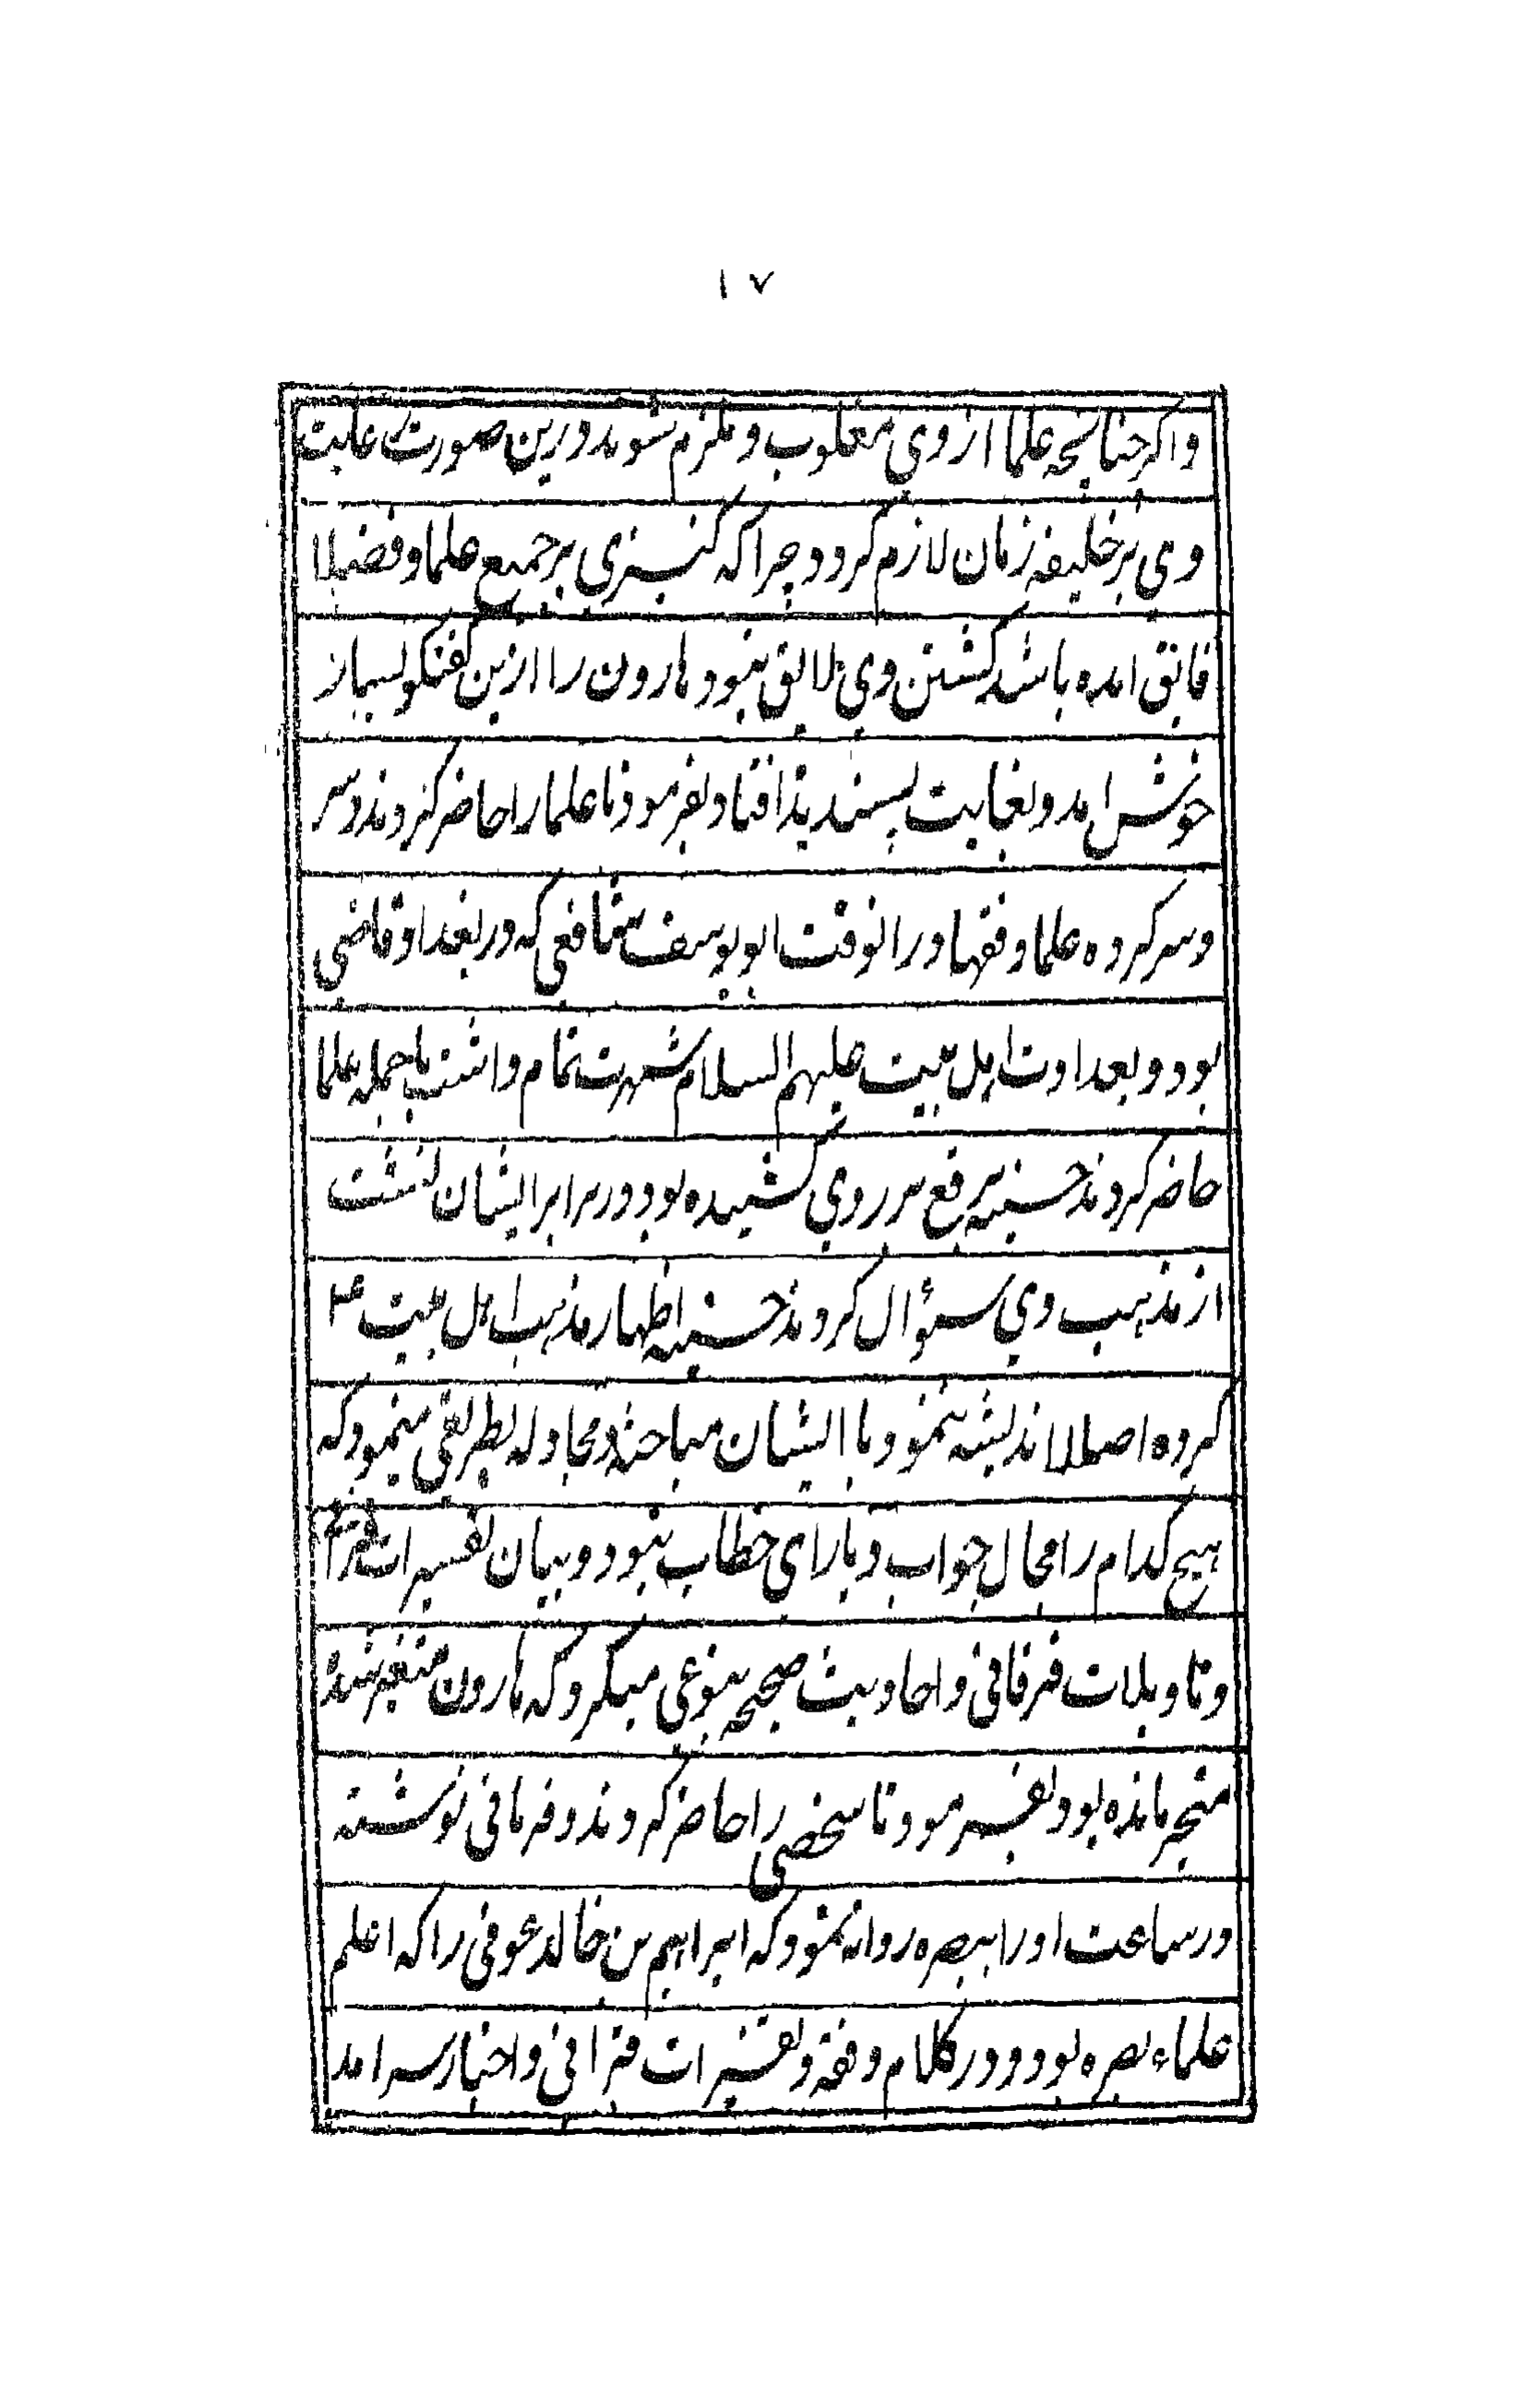 ١٧
واکر چنانچه علما از وی مغلوب و ملزم شوند درین صورت رعایت
وی بر خلیفه زمان لازم کردد چرا که کنیزی بر جمیع علما و فضلا
فایق امده باشد کشتن وی لایق نبود هارون را ازین کفتکو بسیار
خوش امد و بغایت پسندیده افتاد بفرمود تا علما را حاضر کردند و سر
و سرکرده علما و فقها در انوقت ابو یوسف شافعی که در بغداد قاضی
بود و بعداوت اهل بیت علیهم السلام شهرت تمام داشت با جمله علما
حاضر کردند حسنیه برقع بر روی کشیده بود و در برابر ایشان نشست
از مذهب وی سئوال کردند حسنیه اظهار مذهب اهل بیت ع
کرده اصلا اندیشه ننمود با ایشان مباحثه و مجادله بطریقی مینمود که
هیچ کدام را مجال جواب و یارای خطاب نبود و بیان تفسیرات قرانی
و تاویلات فرقانی و احادیث صحیحه بنوعی میکرد که هارون متغیر شده
متحیر مانده بود بفرمود تا شخصی را حاضر کردند و فرمانی نوشته
در ساعت او را ببصره روانه نمود که ابراهیم بن خالد عوفی را که اعلم
علماء بصره بود و در کلام و فقه و تفسیرات قرانی و اخبار سرامد